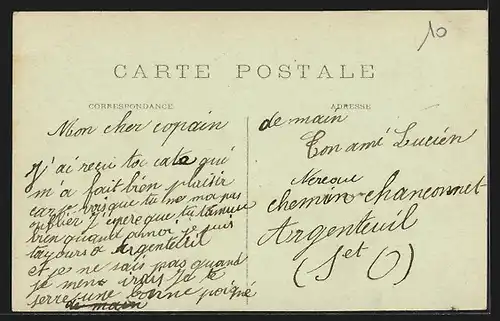 10
CARTE POSTALE
CORRESPONDANCE
ADRESSE
Mon cher copain
J'ai reçu ta cate qué
m'a fait bien plaisir
car je vois que tu ne ma pas
oublier J'espere que tu tamuse
bien quand a moi je suis
tayours a Argenteuil
et je ne sais pas quand
je men irais Je te
serre une bonne poigné
de main
de main
Ton ami Lucien
chemin chanconnet
Argenteuil
(S et O)